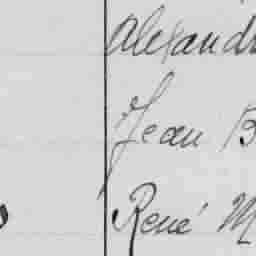 Alexand
Jean B
René M